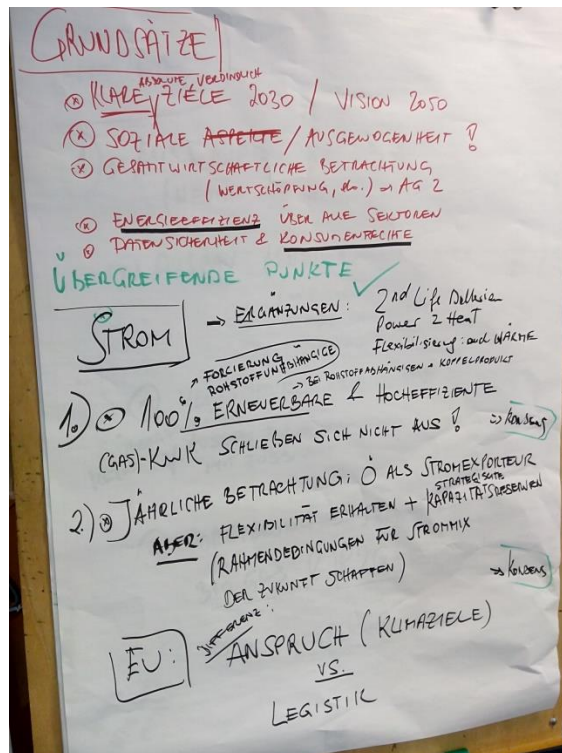 GRUNDSÄTZE
ABSOLUTE VERBINDLICH
KLARE / ZIELE 2030 / VISION 2050
SOZIALE ASPEKTE / AUSGEWOGENHEIT !
GESAMTWIRTSCHAFTLICHE BETRACHTUNG
(WERTSCHÖPFUNG, etc.) → AG 2
ENERGIEEFFIZIENZ ÜBER ALLE SEKTOREN
DATENSICHERHEIT & KONSUMENTRECHTE
ÜBERGREIFENDE PUNKTE
STROM → ERGÄNZUNGEN:
2nd Life
Power 2 Heat
Flexibilisierung: auch WÄRME
→ FORCIERUNG
ROHSTOFFUNABHÄNGIGE
→ BEI ROHSTOFFABHÄNGIGEN → KOPPELPRODUKT
1.) 100% ERNEUERBARE & HOCHEFFIZIENTE
(GAS)-KWK SCHLIEßEN SICH NICHT AUS ! ⇒ KONSENS
2.) JÄHRLICHE BETRACHTUNG; Ö ALS STROMEXPORTEUR
STRATEGISCHE
ABER: FLEXIBILITÄT ERHALTEN + KAPAZITÄTSRESERVEN
(RAHMENBEDINGUNGEN FÜR STROMMIX
DER ZUKUNFT SCHAFFEN) ⇒ KONSENS
DIFFERENZ:
EU: ANSPRUCH (KLIMAZIELE)
VS.
LEGISTIK